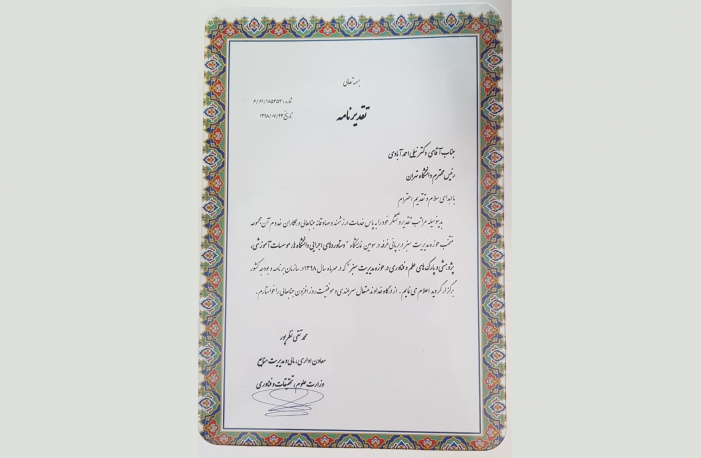 بسمه تعالی
شماره: ۶/۶۱/۱۸۵۲۵۲
تاریخ: ۱۳۹۸/۰۷/۲۳
تقدیرنامه
جناب آقای دکتر نیلی احمدآبادی
رئیس محترم دانشگاه تهران
با اهدای سلام و تقدیم احترام
بدینوسیله مراتب تقدیر و تشکر خود را به پاس خدمات ارزشمند و صادقانه جنابعالی و همکاران خدوم آن مجموعه
منتخب حوزه مدیریت سبز در برپائی غرفه در سومین نمایشگاه "دستاوردهای اجرایی دانشگاه ها، موسسات آموزشی،
پژوهشی و پارک های علم و فناوری در حوزه مدیریت سبز" که در مهرماه سال ۱۳۹۸ در سازمان برنامه و بودجه کشور
برگزار گردید اعلام می نمایم. از درگاه خداوند متعال سربلندی و موفقیت روزافزون جنابعالی را خواستارم.
محمد تقی نظرپور
معاون اداری، مالی و مدیریت منابع
وزارت علوم، تحقیقات و فناوری